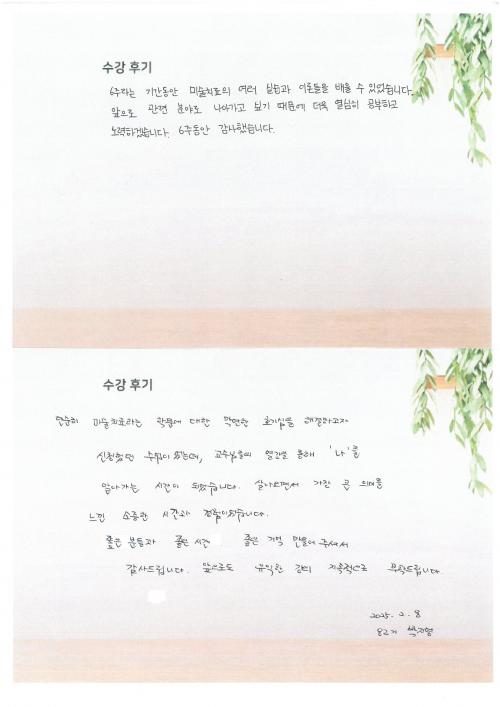 수강 후기
6주라는 기간동안 미술치료의 여러 실습과 이론들을 배울 수 있었습니다.
앞으로 관련 분야로 나아가고 싶기 때문에 더욱 열심히 공부하고
노력하겠습니다. 6주동안 감사했습니다.
수강 후기
단순히 미술치료라는 학문에 대한 막연한 호기심을 해결하고자
신청했던 수업이었는데, 교수님들의 열강을 통해 '나'를
알아가는 시간이 되었습니다. 살아오면서 가장 큰 의미를
느낀 소중한 시간과 경험이었습니다.
좋은 분들과 좋은 시간 좋은 기억 만들어 주셔서
감사드립니다. 앞으로도 유익한 강의 지속적으로 부탁드립니다.
2025. 2. 8
82기